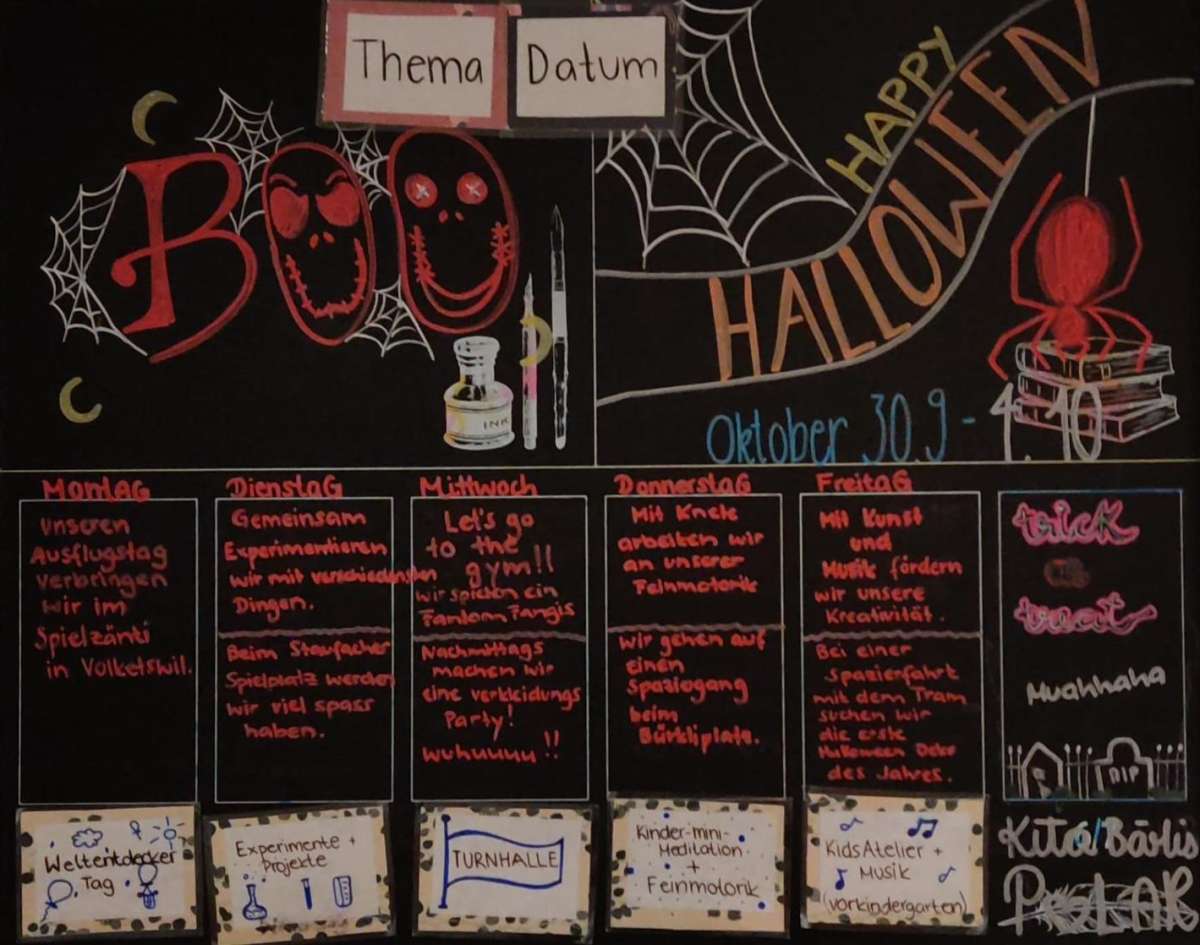 Thema
Datum
BOO
INK
HAPPY
HALLOWEEN
Oktober 30.9 - 4.10
MontaG
Unseren
Ausflugstag
verbringen
wir im
Spielzänti
in Volketswil.
DienstaG
Gemeinsam
Experimentieren
wir mit verschiedensten
Dingen.
Beim Staufacher
Spielplatz werden
wir viel spass
haben.
Mittwoch
Let's go
to the
gym!!
wir spielen ein
Fantom Fangis
Nachmittags
machen wir
eine verkleidungs
Party!
wuhuuuu!!
DonnerstaG
Mit Knete
arbeiten wir
an unserer
Feinmotorik
Wir gehen auf
einen
Spaziegang
beim
Bürkliplatz.
FreitaG
Mit Kunst
und
Musik fördern
wir unsere
Kreativität.
Bei einer
Spazierfahrt
mit dem Tram
suchen wir
die erste
Halloween Deko
des Jahres.
trick
treat
Muahhaha
RIP
Weltentdecker
Tag
Experimente +
Projekte
TURNHALLE
Kinder-mini-
Meditation
+
Feinmotorik
KidsAtelier +
Musik
(vorkindergarten)
Kita Bärlis